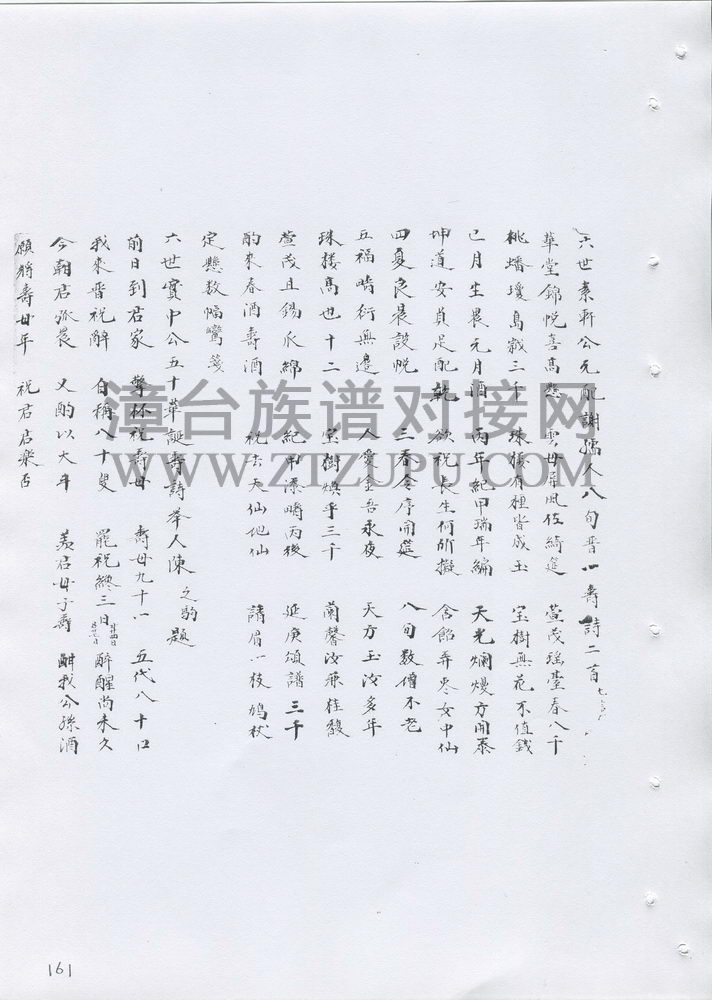 六世素軒公元配謝孺人八旬晉一壽詩二首七
華堂錦帨喜高懸 雲母屏風佐綺筵 萱茂瑤臺春八千
桃蟠瓊島嵗三千 珠樹有種皆成玉 宝樹無花不值錢
巳月生晨元月酒 丙年紀甲瑞年編 天光爛熳方開泰
坤道安貞足配乾 欲祝長生何所擬 含飴弄棗女中仙
四夏良晨設帨 三春令序開筵 八旬数僧不老
五福疇衍無邊 人愛金吾永夜 天方玉汝多年
珠楼髙也十二 宝樹煥乎三千 蘭馨汝兼桂馥
萱茂且錫瓜綿 紀甲添疇丙後 延庚頌譜三千
酌來春酒壽酒 祝去天仙地仙 請眉一枝鳩杖
定懸数幅鸞箋
六世實中公五十華誕壽詩举人陳之駒題
前日到君家 擎杯祝壽母 壽母九十一 五代八十口
我來晋祝辭 自稱八十叟 罷祝總三日廿四日廿七日 醉醒尚未久
今朝君弧晨 又酌以大斗 羨君母子壽 酣我公孫酒
願將壽廿年 祝君君樂否
漳台族谱对接网
WWW.ZTZUPU.COM
161